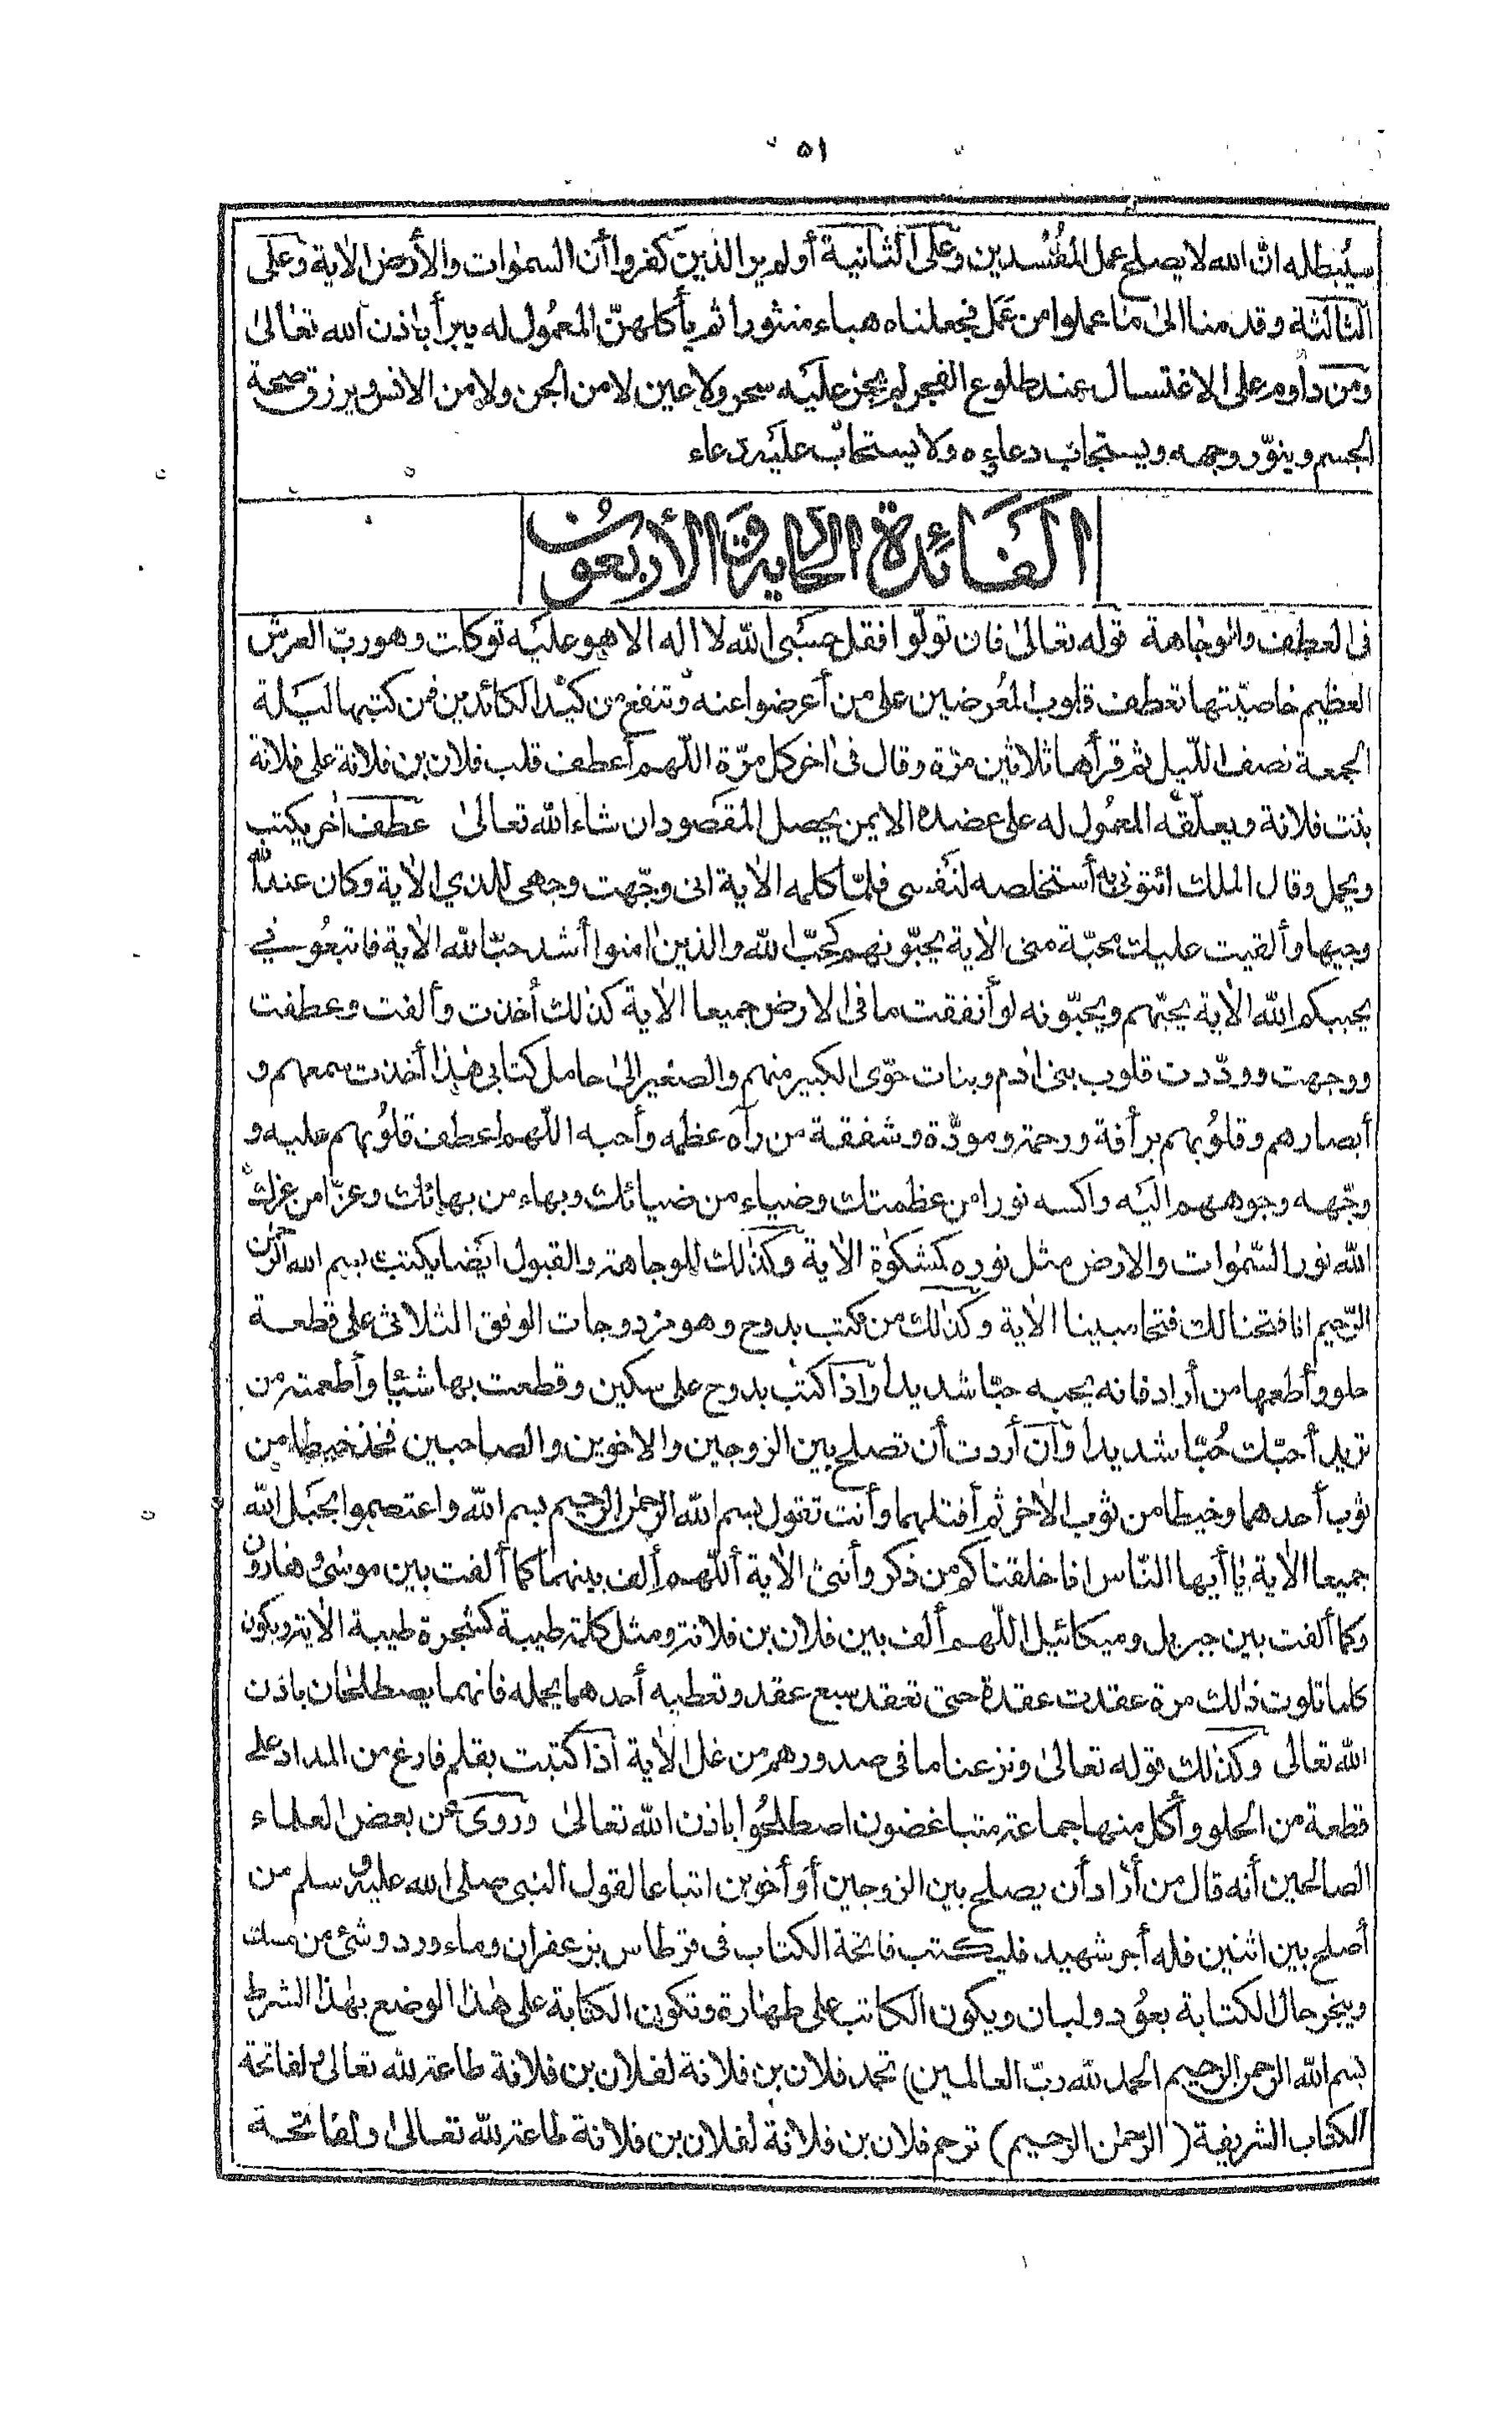 ٥١
سيُبطله انّ الله لا يصلح عمل المُفْسدين وعلى الثانية أولم ير الذين كفروا أن السمٰوات والأرض الاٰية وعلى
الثالثة وقدمنا الىٰ ما عملوا من عَمَل فجعلناه هباء منثورا ثم يأكلهنّ المعمُول له يبرأ باذن الله تعالىٰ
ومن داوم على الاغتسال عند طلوع الفجر لم يجز عليَه سحر ولا عين لا من الجن ولا من الانس ويرزق صحة
الجسم وينوّر وجهه ويستجاب دعاءه ولا يستجاب عليَه دعاء
الفَائدة الحادية والأربعون
فى العطف والوجاهة قوله تعالىٰ فان تولّوا فقل حسْبى الله لا اله الا هو عليَه توكلت وهو ربّ العرش
العظيم خاصيّتها تعطف قلوب المُعرضين على من أعرضوا عنه وتنفع من كيْد الكائدين فمن كتبها ليَلة
الجمعة نصف اللّيل ثم قرأها ثلاثين مرّة وقال فى اٰخر كل مرّة اللّهم أعطف قلب فلان بن فلانة على فلانة
بنت فلانة ويعلّقه المعمُول له على عضده الايمن يحصل المقصود ان شاء الله تعالىٰ عطف اٰخر يكتب
ويحمل وقال الملك ائتونى به أستخلصه لنفسى فلمّا كلمه الاٰية انى وجّهت وجهى للذي الاٰية وكان عند الله
وجيها وألقيت عليك محبّة منى الاٰية يحبّونهم كحبّ الله والذين اٰمنوا أشد حبّا لله الاٰية فاتبعُونى
يحببكم الله الاٰية يحبّهم ويحبّونه لو أنفقت ما فى الارض جميعا الاٰية كذٰلك أخذت وألفت وعطفت
ووجهت وودّدت قلوب بنى اٰدم وبنات حوّى الكبير منهم والصغير الىٰ حامل كتابى هٰذا أخذت سمعهم و
أبصارهم وقلوُبهم برأفة ورحمة ومودّة وشفقة من رأه عظمه وأحبه اللّهم اعطف قلوُبهم عليه و
وجّهه وجوههم اليَه واكسه نورا من عظمتك وضياء من ضيائك وبهاء من بهائك وعزّا من عزك
الله نور السّمٰوات والارض مثل نوره كمشكوٰة الاٰية وكذٰلك للوجاهة والقبول ايضا يكتب بسم الله الرّحمٰن
الرّحيم انا فتحنا لك فتحا مبينا الاٰية وكذٰلك من كتب بدوح وهو مزدوجات الوفق الثلاثى على قطعة
حلو وأطعمها من أراد فانه يحبه حبّا شديدا واذا كتب بدوح على سكين وقطعت بها شئيا وأطعمته من
تريد أحبّك حُبّا شديدا وان أردت أن تصلح بين الزوجين والاخوين والصاحبين فخذ خيطا من
ثوب أحدهما وخيطا من ثوب الاٰخر ثم أفتلهما وأنت تقول بسم الله الرحمٰن الرحيم بسم الله واعتصموا بحبَل الله
جميعا الاٰية يٰا أيها النّاس انا خلقناكم من ذكر وأنثى الاٰية أللّهم ألف بينهما كما ألفت بين موسٰى وهارون
وكما ألفت بين جبريل وميكائيل اللّهم ألف بين فلان بن فلانة ومثل كلمة طيبة كشجرة طيبة الاٰية ويكون
كلما تلوت ذٰلك مرة عقدت عقدة حتى تعقد سبع عقد وتعطيه أحدهما يحمله فانهما يصطلحان باذن
الله تعالى وكذٰلك قوله تعالىٰ ونزعنا ما فى صدورهم من غل الاٰية اذا كتبت بقلم فارغ من المداد على
قطعة من الحلو وأكل منها جماعة متباغضون اصطلحُوا باذن الله تعالىٰ وروى عن بعض العلماء
الصالحين أنه قال من أراد أن يصلح بين الزوجين أو أخوين اتباعا لقول النبى صلى الله عليه وسلم من
أصلح بين اثنين فله أجر شهيد فليكتب فاتحة الكتاب فى قرطاس بزعفران وماء ورد وشئ من مسك
ويبخر حال الكتابة بعوُد ولبان ويكون الكاتب على طهارة وتكون الكتابة على هٰذا الوضع بهٰذا الشرط
بسم الله الرحمن الرحيم الحمد لله ربّ العالمين) تحمد فلان بن فلانة لفلان بن فلانة طاعة لله تعالىٰ ولفاتحة
الكتاب الشريفة (الرحمٰن الرحيم) ترحم فلان بن فلانة لفلان بن فلانة طاعة لله تعالىٰ ولفاتحة